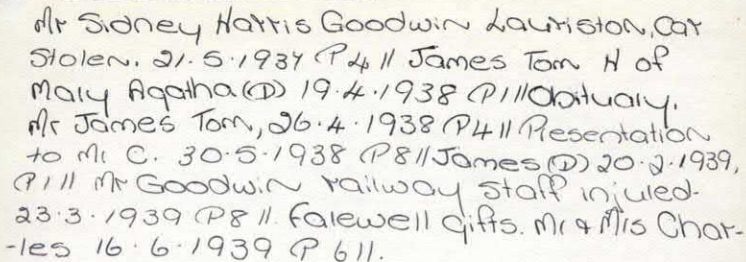 Mr Sidney Harris Goodwin Lauriston, Car
Stolen. 21.5.1937 P4 // James Tom H of
Mary Agatha (D) 19.4.1938 P1 // Obituary.
Mr James Tom, 26.4.1938 P4 // Presentation
to Mr C. 30.5.1938 P8 // James (D) 20.2.1939,
P1 // Mr Goodwin railway staff injured.
23.3.1939 P8 // Farewell gifts. Mr & Mrs Char-
-les 16.6.1939 P 6 //.